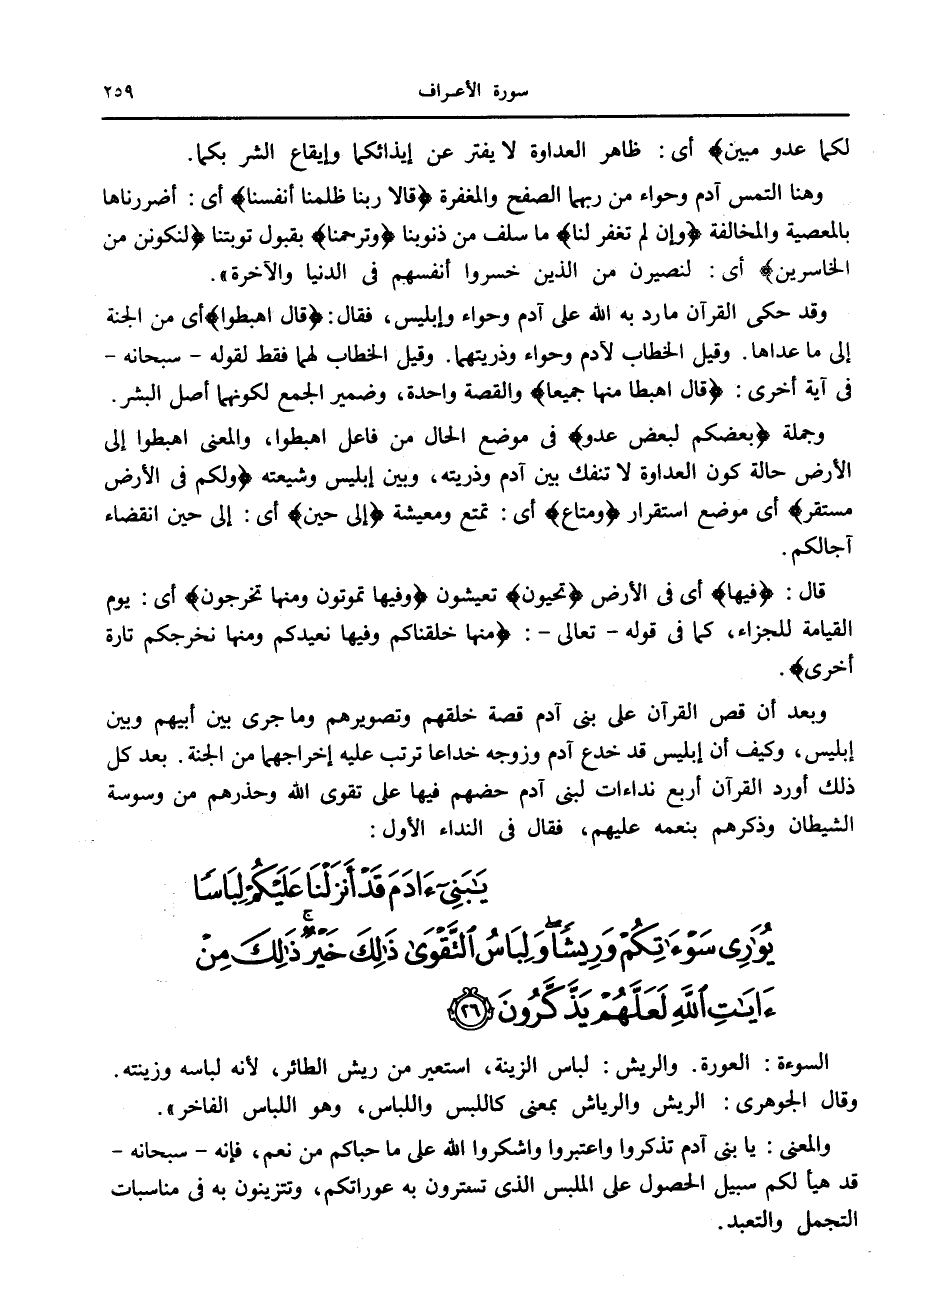 سورة الأعراف ٢٥٩
لكما عدو مبين﴾ أى : ظاهر العداوة لا يفتر عن إيذائكما وإيقاع الشر بكما.
وهنا التمس آدم وحواء من ربهما الصفح والمغفرة ﴿قالا ربنا ظلمنا أنفسنا﴾ أى : أضررناها
بالمعصية والمخالفة ﴿وإن لم تغفر لنا﴾ ما سلف من ذنوبنا ﴿وترحمنا﴾ بقبول توبتنا ﴿لنكونن من
الخاسرين﴾ أى : لنصيرن من الذين خسروا أنفسهم فى الدنيا والآخرة».
وقد حكى القرآن ما رد به الله على آدم وحواء وإبليس، فقال: ﴿قال اهبطوا﴾ أى من الجنة
إلى ما عداها. وقيل الخطاب لآدم وحواء وذريتهما. وقيل الخطاب لهما فقط لقوله - سبحانه -
فى آية أخرى : ﴿قال اهبطا منها جميعا﴾ والقصة واحدة، وضمير الجمع لكونهما أصل البشر.
وجملة ﴿بعضكم لبعض عدو﴾ فى موضع الحال من فاعل اهبطوا، والمعنى اهبطوا إلى
الأرض حالة كون العداوة لا تنفك بين آدم وذريته، وبين إبليس وشيعته ﴿ولكم فى الأرض
مستقر﴾ أى موضع استقرار ﴿ومتاع﴾ أى : تمتع ومعيشة ﴿إلى حين﴾ أى : إلى حين انقضاء
آجالكم.
قال : ﴿فيها﴾ أى فى الأرض ﴿تحيون﴾ تعيشون ﴿وفيها تموتون ومنها تخرجون﴾ أى : يوم
القيامة للجزاء، كما فى قوله - تعالى - : ﴿منها خلقناكم وفيها نعيدكم ومنها نخرجكم تارة
أخرى﴾.
وبعد أن قص القرآن على بنى آدم قصة خلقهم وتصويرهم وما جرى بين أبيهم وبين
إبليس، وكيف أن إبليس قد خدع آدم وزوجه خداعا ترتب عليه إخراجهما من الجنة. بعد كل
ذلك أورد القرآن أربع نداءات لبنى آدم حضهم فيها على تقوى الله وحذرهم من وسوسة
الشيطان وذكرهم بنعمه عليهم، فقال فى النداء الأول:
يَٰبَنِىٓ ءَادَمَ قَدْ أَنزَلْنَا عَلَيْكُمْ لِبَاسًا
يُوَٰرِى سَوْءَٰتِكُمْ وَرِيشًا ۖ وَلِبَاسُ ٱلتَّقْوَىٰ ذَٰلِكَ خَيْرٌ ۚ ذَٰلِكَ مِنْ
ءَايَٰتِ ٱللَّهِ لَعَلَّهُمْ يَذَّكَّرُونَ ۝٢٦
السوءة : العورة. والريش : لباس الزينة، استعير من ريش الطائر، لأنه لباسه وزينته.
وقال الجوهرى : الريش والرياش بمعنى كاللبس واللباس، وهو اللباس الفاخر».
والمعنى : يا بنى آدم تذكروا واعتبروا واشكروا الله على ما حباكم من نعم، فإنه - سبحانه -
قد هيأ لكم سبيل الحصول على الملبس الذى تسترون به عوراتكم، وتتزينون به فى مناسبات
التجمل والتعبد.